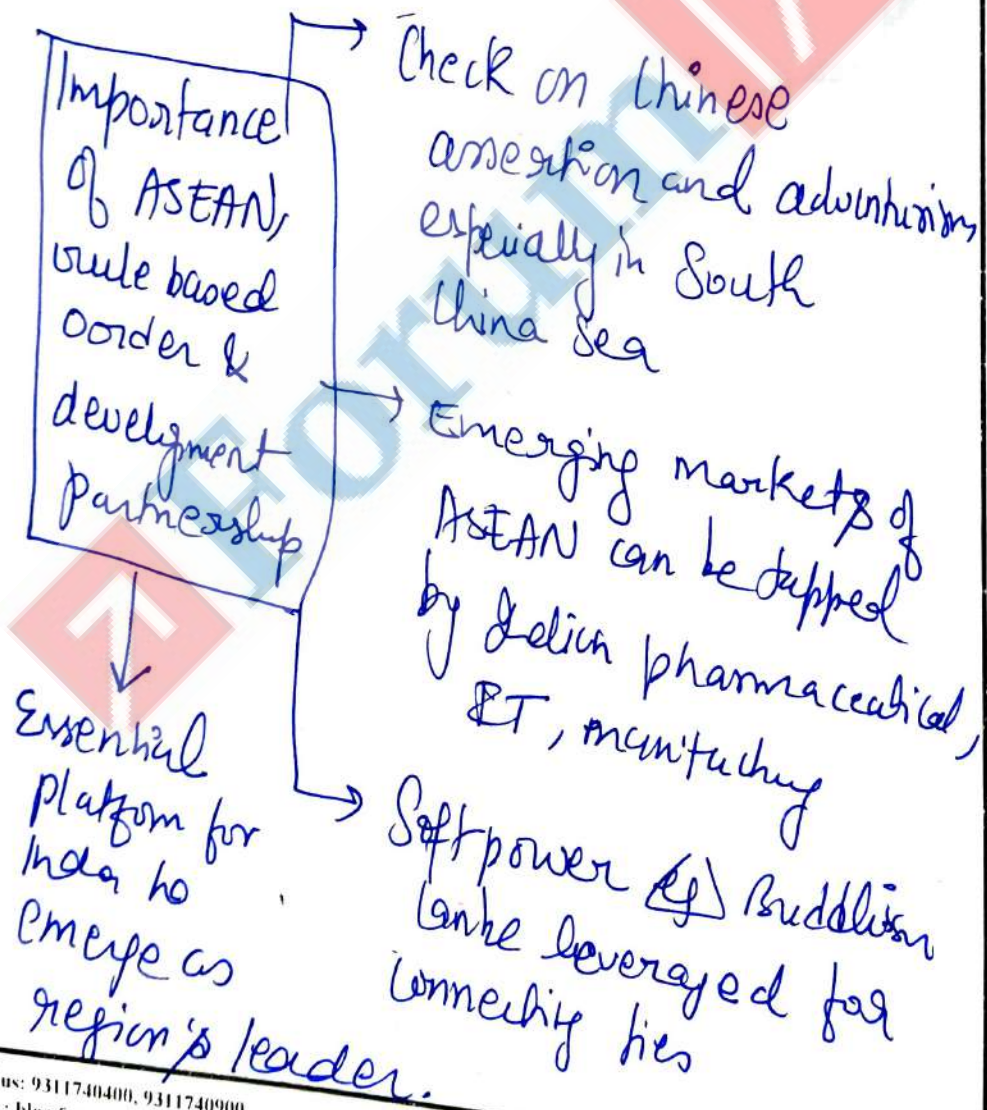 Importance
of ASEAN,
rule based
order &
develigment
partnership
Check on Chinese
assertion and advinturism,
especially in South
China Sea
Emerging markets of
ASEAN can be tapped
by Indian pharmaceutical,
IT, manufuchuy
Soft power eg Buddhism
can be leveraged for
connecting ties
Essential
platform for
India to
emerge as
region's leader.
Forum
us: 9311740400, 9311740900